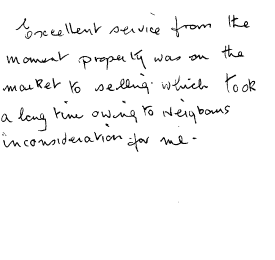 Excellent service from the
moment property was on the
market to selling. which took
a long time owing to Neigbours
inconsideration for me.